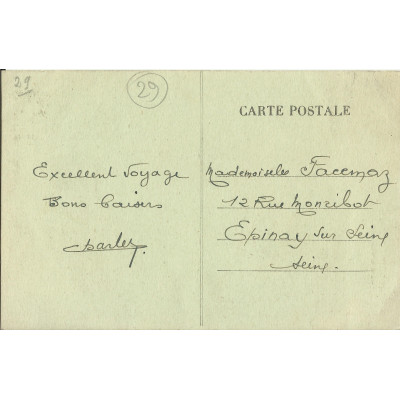 29
29
CARTE POSTALE
Excellent Voyage
Bons baisers
Charles
Mademoiselle Facemaz
12 Rue Monribot
Epinay sur Seine
Seine.